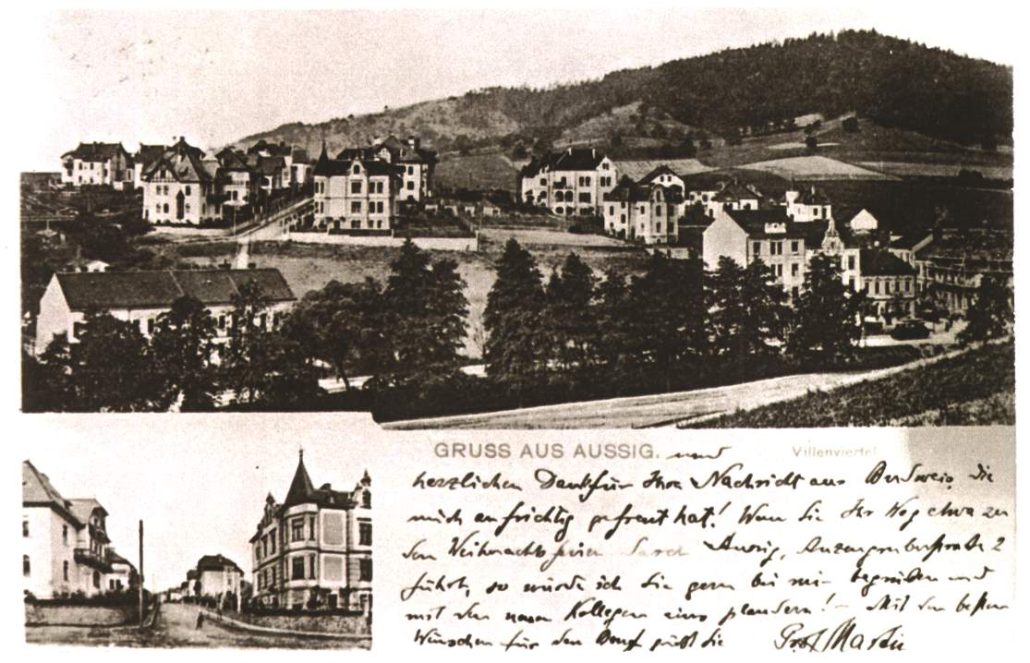 GRUSS AUS AUSSIG. und
Villenviertel
herzlichen Dank für Ihre Nachricht aus Budweis, die
mich aufrichtig gefreut hat! Wenn Sie Ihr Weg etwa zu
den Weihnachtsferien durch Aussig, 2
führt, so würde ich Sie gern bei mir begrüßen und
mit dem neuen Kollegen eins plaudern! – Mit den besten
Wünschen für den Beruf grüßt Sie Prof Martin